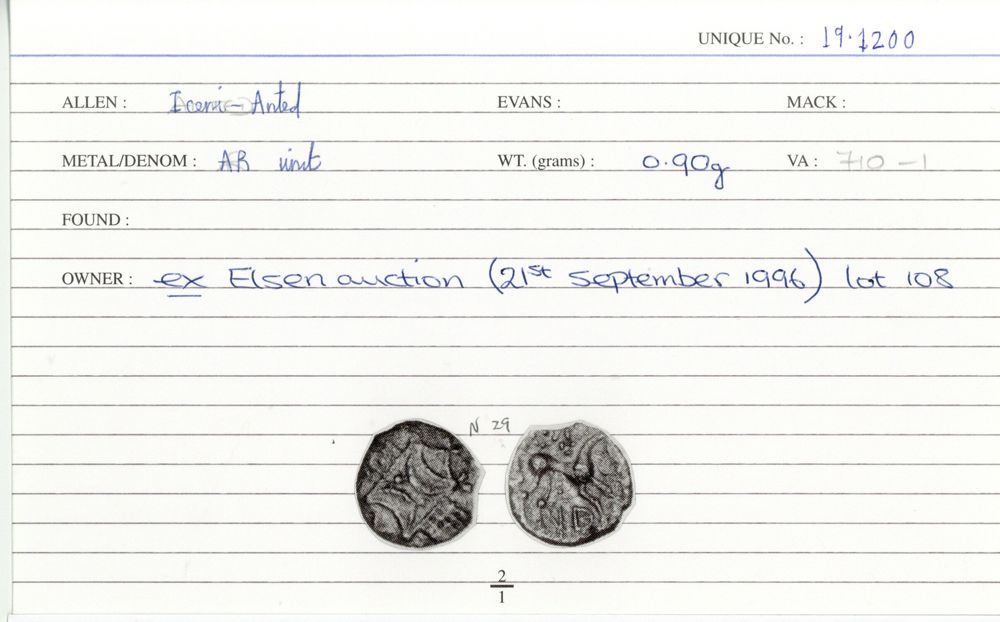 UNIQUE No. : 19.1200
ALLEN : Iceni-Anted EVANS : MACK :
METAL/DENOM : AR unit WT. (grams) : 0.90g VA : 710-1
FOUND :
OWNER : ex Elsen auction (21st September 1996) lot 108
N 29
ND
2
1